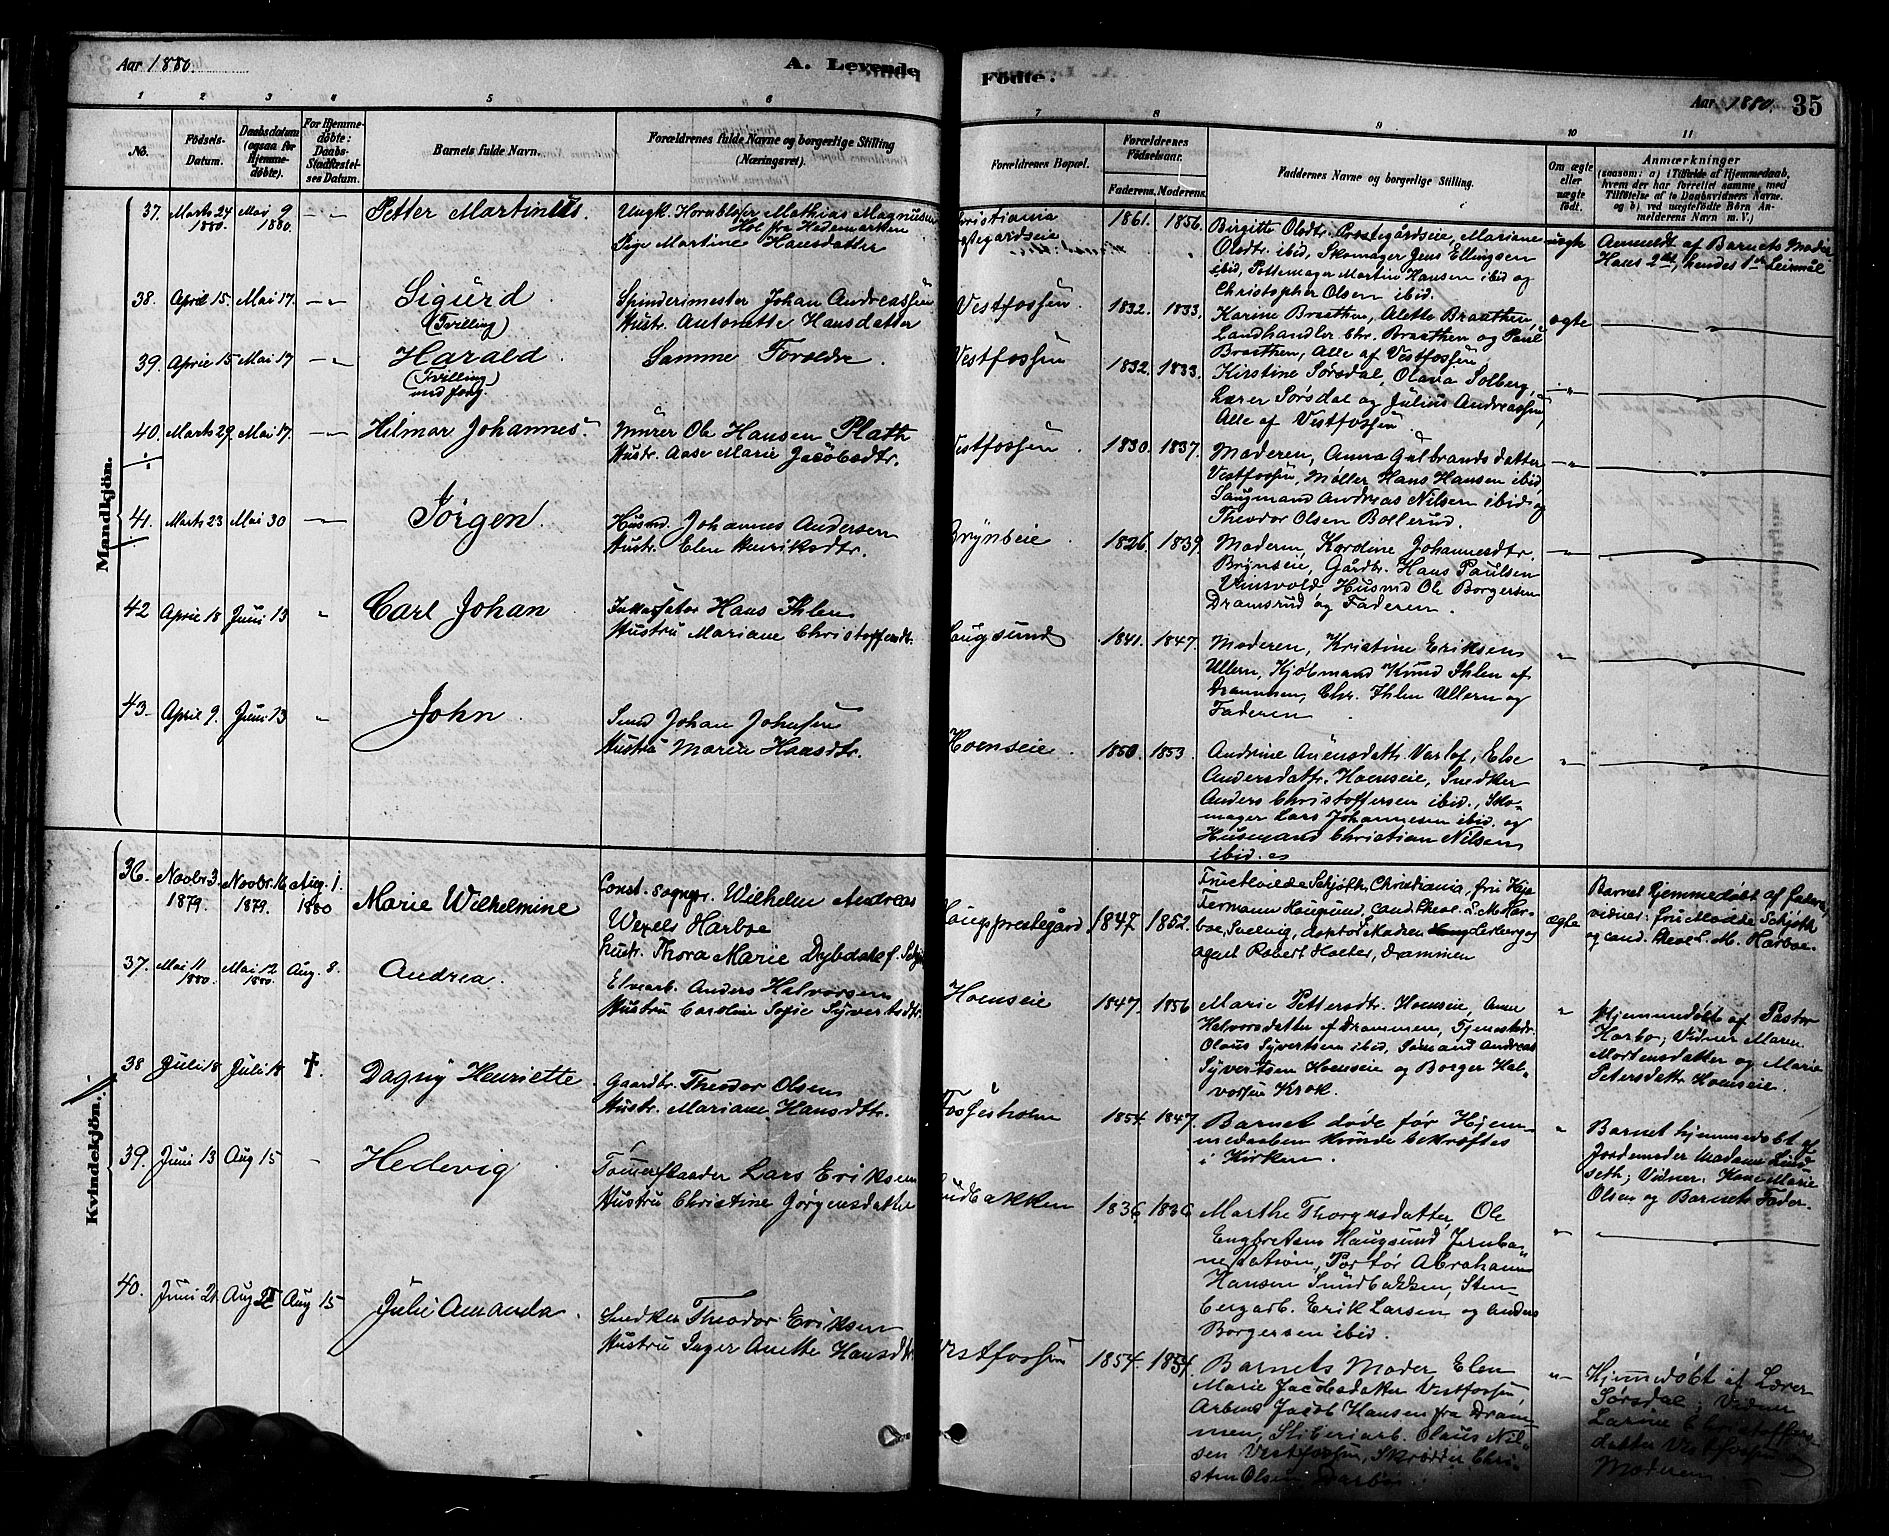 Aar 1880.
A. Levende
Födte.
Aar 1880.
35
1 2 3 4 5 6 7 8 9 10 11
No.
Födsels-
Datum.
Daabsdatum
(ogsaa for
Hjemme-
döbte).
For Hjemme-
döbte:
Daabs-
Stadfæstel-
ses Datum.
Barnets fulde Navn.
Forældrenes fulde Navne og borgerlige Stilling
(Næringsvei).
Forældrenes Bopæl.
Forældrenes
Födselsaar.
Faderens. Moderens.
Faddernes Navne og borgerlige Stilling.
Om ægte
eller
uægte
födt.
Anmærkninger
(saasom: a) i Tilfælde af Hjemmedaab,
hvem der har forrettet samme, med
Tilföielse af to Daabsvidners Navne.
og b) ved uægtefödte Börn An-
melderens Navn m. V.)
Mandkjön.
37. Marts 24 1880. Mai 9 1880.
Petter Martinus.
Ungk. Hornblåser Mathias Magnusen
Hol fra Hedemarken
Pige Martine Hansdatter
Christiania
1861. 1856.
Birgitte Olsdtr. Præstegårdseie, Mariane
Olsdtr. ibid, Skomager Jens Ellingsen
ibid, Pottemager Martin Hansen ibid og
Christopher Olsen ibid.
uægte
Anmeldt af Barnets Moder
Hans 2det, hendes 1ste Leiermål
38. April 15. Mai 17.
Sigurd
(Tvilling)
Spinderimester Johan Andreassen
Hustr. Antonette Hansdatter
Vestfossen.
1832. 1833.
Karine Braathen, Alette Braathen,
Landhandler Chr. Braathen og Paul
Braathen, Alle af Vestfossen
ægte
39. April 15 Mai 17
Harald
(Tvilling)
Samme Forældre.
Vestfossen
1832. 1833.
Kirstine Sørsdal, Olava Solberg,
Lærer Sørsdal og Julius Andreassen,
Alle af Vestfossen.
40. Marts 29. Mai 17.
Hilmar Johannes.
Murer Ole Hansen Plath
Hustr. Aase Marie Jacobsdtr.
Vestfossen.
1830. 1837.
Moderen, Anna Gulbrandsdatter
Vestfossen, Møller Hans Hansen ibid,
Saugmand Andreas Nilsen ibid og
Theodor Olsen Bollerud.
41. Marts 23 Mai 30
Jörgen.
Husmd. Johannes Andersen
Hustr. Elen Henriksdtr.
Brynseie.
1826. 1839.
Moderen, Karoline Johannesdtr.
Brynseie, Gårdb. Hans Paulsen
Vinsvold, Husmd Ole Borgersen
Dramsrud og Faderen.
42 April 18 Juni 13
Carl Johan
Inkassator Hans Ihlen
Hustru Mariane Christoffersdt.
Haugsund
1841. 1847.
Moderen, Kristine Eriksen
Ullern, Kjøbmand Knud Ihlen af
Drammen, Chr. Ihlen Ullern og
Faderen.
43. April 9. Juni 13
John.
Smed Johan Johnsen
Hustru Maren Hansdtr.
Hoenseie.
1850. 1853.
Andersdatr. Hoenseie, Snedker
Anders Christoffersen ibid., Sko-
mager Lars Johannesen ibid. og
Husmand Christian Nilsen
ibid.
Kvindekjön.
36. Novbr 3. 1879. Novbr. 16 1879. Aug. 1. 1880
Marie Wilhelmine
Const. sognepr. Wilhelm Andreas
Wexels Harboe
Hustr. Thora Marie Dybdahl f. Schjøth
Haugs præstegård
1847 1852.
ægte
Barnet hjemmedøbt af faderen,
vidner: fru Modde Schjøth
og cand. theol. L. M. Harboe.
agent Robert Holter, Drammen
37. Mai 11 1880. Mai 12 1880. Aug. 8.
Andrea.
Elvearb. Anders Halvorsen
Hustru Caroline Sofie Syvertsdtr.
Hoenseie
1847. 1856
Marie Pettersdtr. Hoenseie, Anne
Halvorsdatter af Drammen, Tjenestedr.
Olaus Syvertsen ibid, Sømand Andreas
Syvertsen Hoenseie og Borger Hal-
vorsen Krok.
Hjemmedøbt af Pastor
Harbo; Vidner Maren
Mortensdatter og Marie
Petersdatr. Hoenseie.
38 Juli 18 Juli 18 ✝.
Dagny Henriette.
Gaardbr. Theodor Olsen
Hustr. Mariane Hansdtr.
Fossesholm
1854. 1847.
Barnet døde før Hjem-
medaaben kunde bekræftes
i Kirken.
Barnet hjemmedøbt af
Jordemoder Madame Lind
seth; Vidner. Kone Marie
Olsen og Barnets Fader.
39. Juni 13 Aug 15
Hedevig
Tømmerflaader Lars Eriksen
Hustru Christine Jørgensdatter
Sundbakken
1836. 1836
Marthe Thorgersdatter, Ole
Engbretsen Haugsund Jernba-
nestation, Portør Abraham
Hansen Sundbakken, Sten
bergarb. Erik Larsen og Anders
Borgersen ibid.
40. Juni 21 Aug Aug 15
Julie Amanda.
Snedker Theodor Eriksen
Hustru Inger Anette Hansdtr
Vestfossen
1854. 1854.
Barnets Moder, Elen
Marie Jacobsdatter Vestfossen
Arbeids. Jacob Hansen fra Dram-
men, Sliberiarb. Olaus Nil-
sen Vestfossen, Skrædder Chri-
sten Olsen Darbo.
Hjemmedøbt af Lærer
Sørsdal; Vidner
Larine
datter Vestfossen og
Moderen